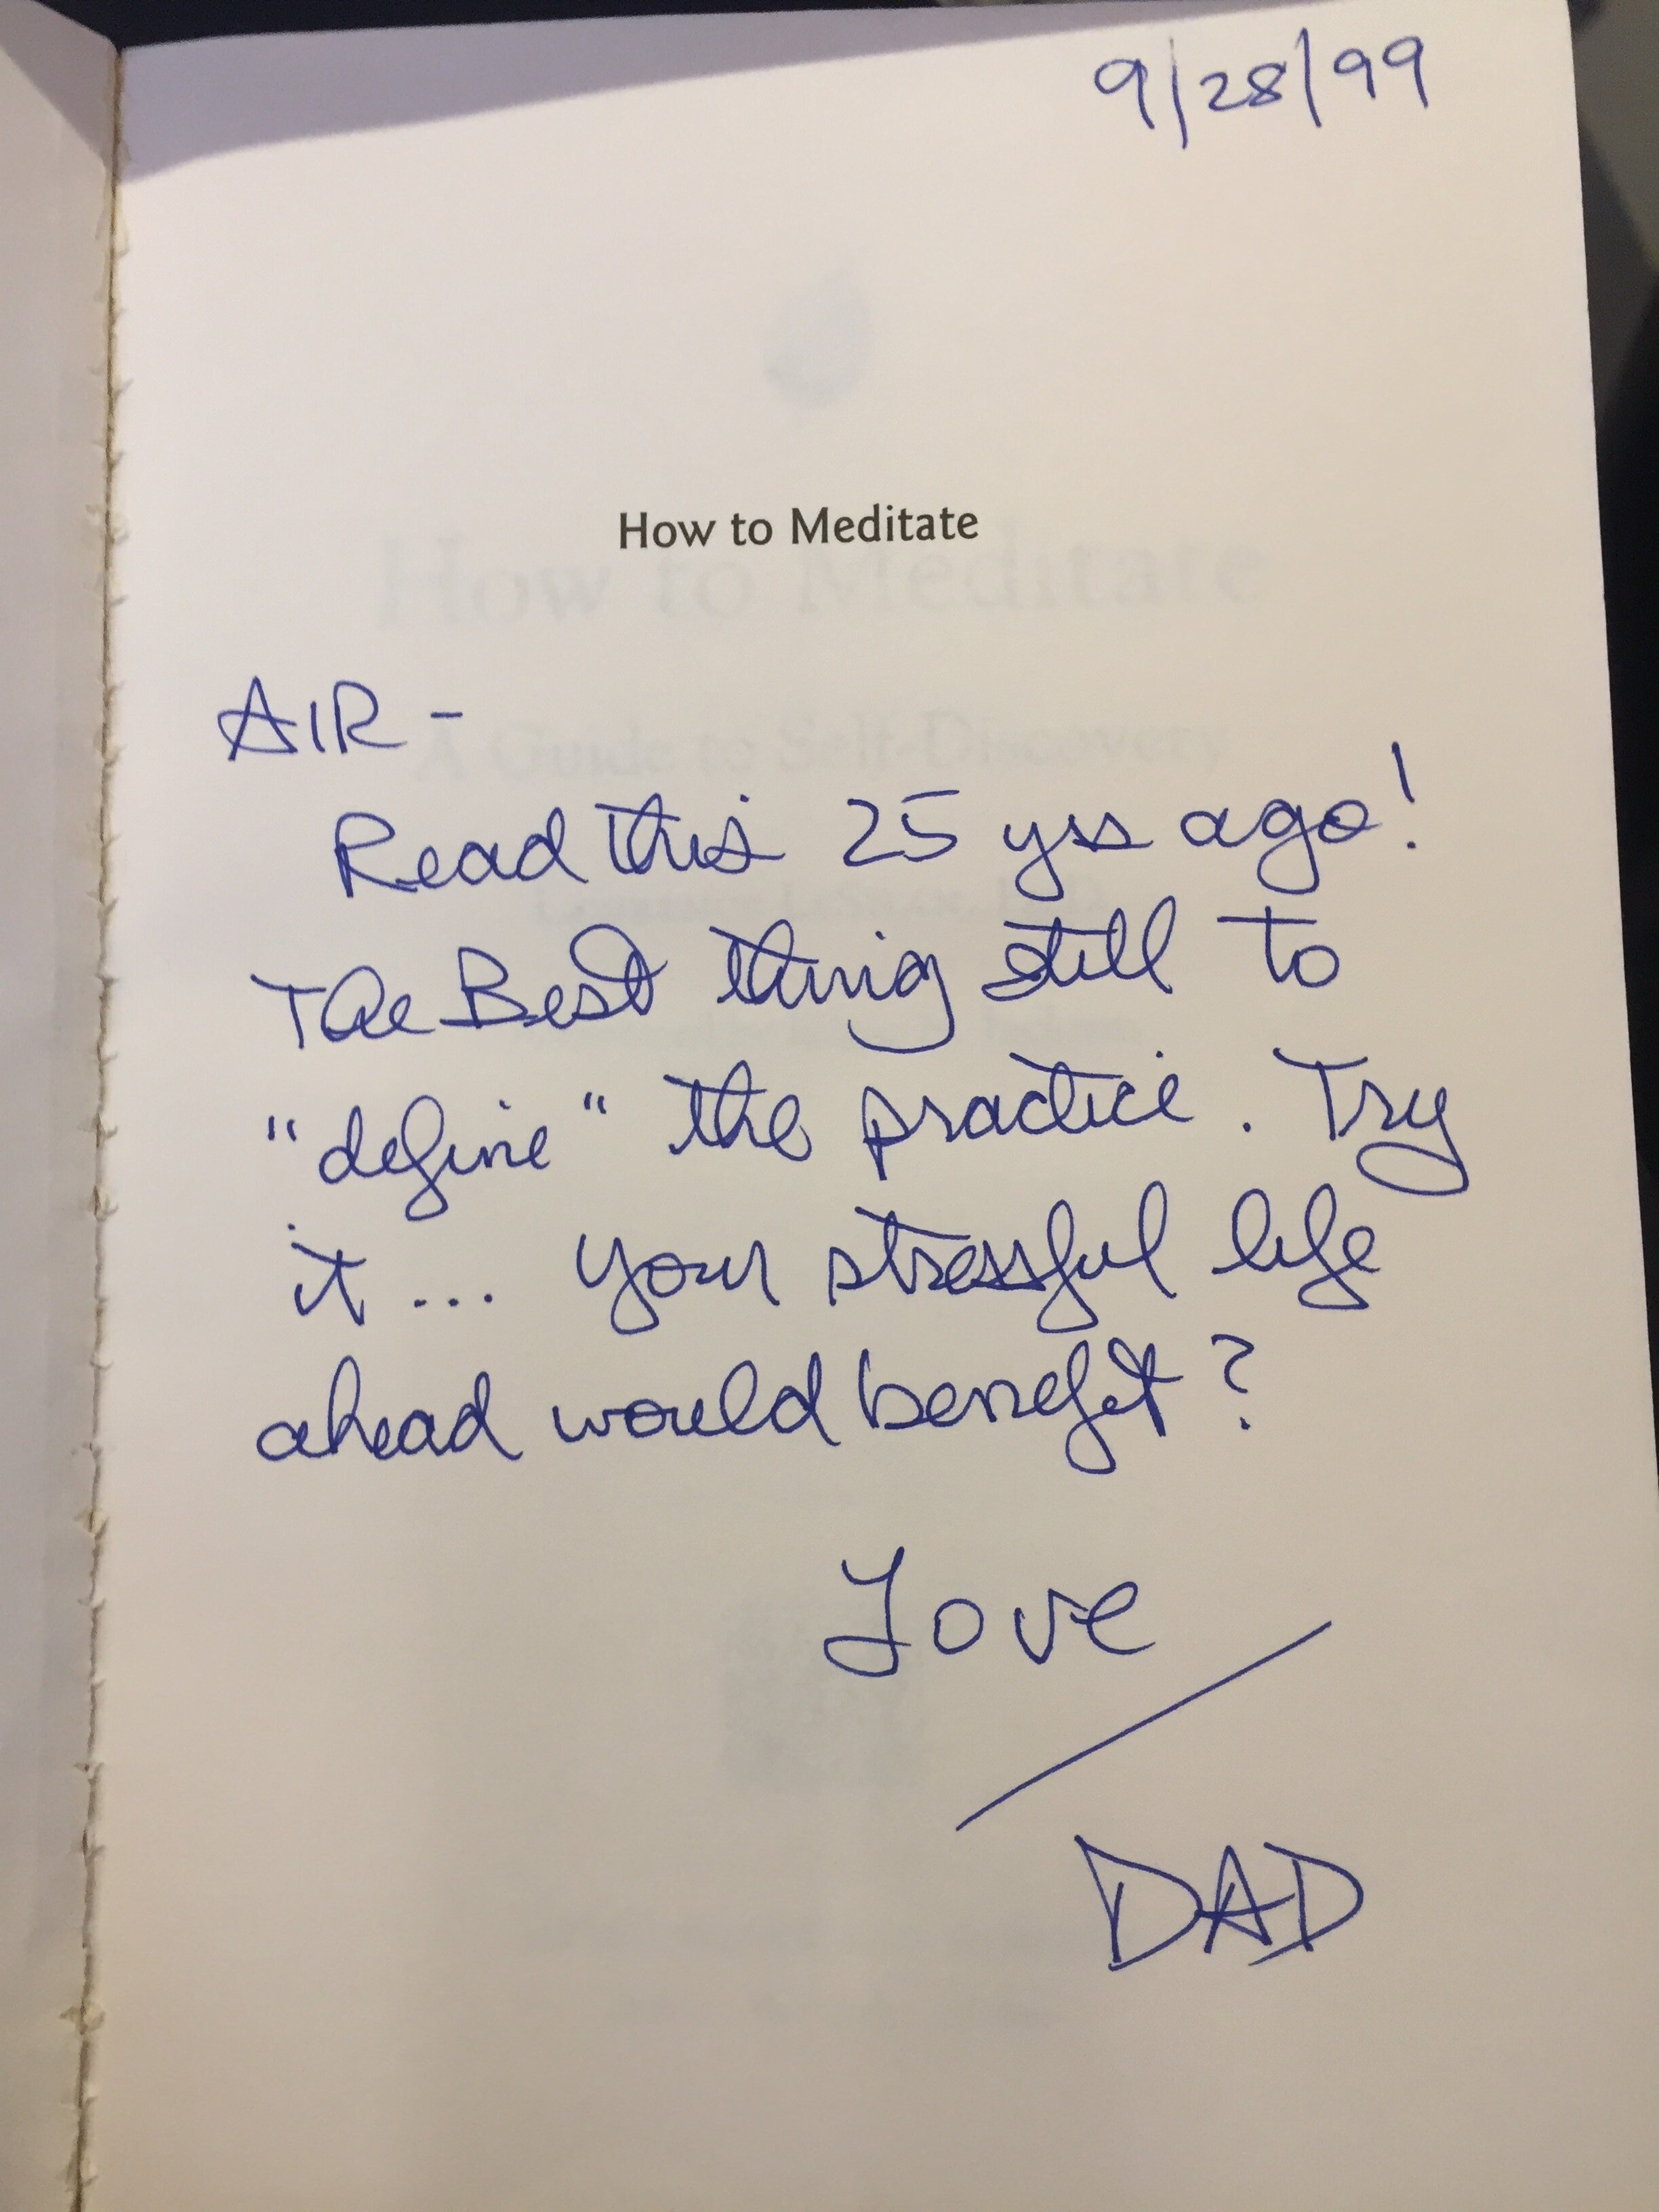 9/28/99
How to Meditate
How to Meditate
AIR -
A Guide to Self-Discovery
Read this 25 yrs ago!
The Best thing still to
"define" the practice. Try
it... your stressful life
ahead would benefit?
Love
DAD